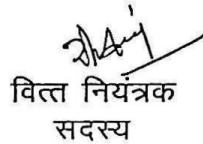 वित्त नियंत्रक
सदस्य